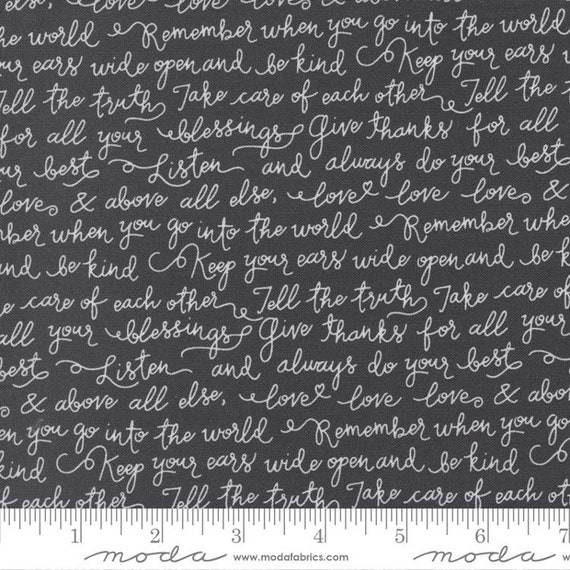 else, love love love &
the world Remember when you go into the world
ur ears wide open and be kind Keep your ears w
Tell the truth Take care of each other Tell the t
for all your blessings Give thanks for all
ur best Listen and always do your best
love & above all else, love love love &
mber when you go into the world Remember when
and be kind Keep your ears wide open and be
e care of each other Tell the truth Take care
all your blessings Give thanks for all your
best Listen and always do your best
& above all else, love love love & a
en you go into the world Remember when you g
kind Keep your ears wide open and be kind
of each other Tell the truth Take care of e
1 2 3 4 5 6 7
moda www.modafabrics.com moda